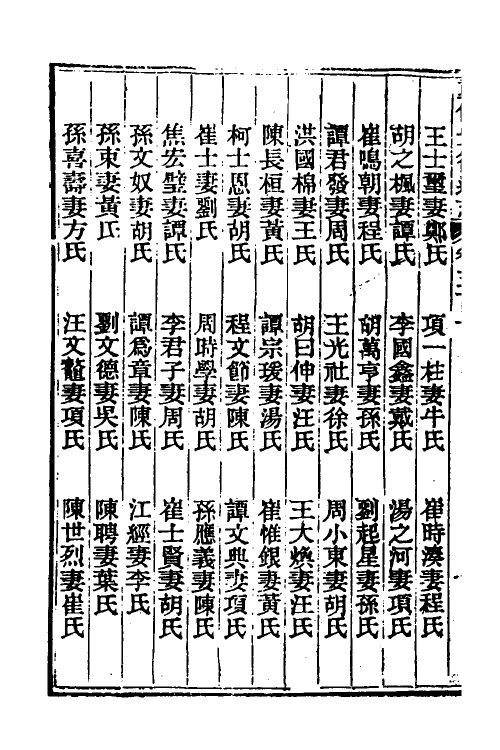 王士璽妻鄭氏　項一柱妻牛氏　崔時湊妻程氏
胡之楓妻譚氏　李國鑫妻戴氏　湯之河妻項氏
崔鳴朝妻程氏　胡萬亨妻孫氏　劉起星妻孫氏
譚君發妻周氏　王光社妻徐氏　周小東妻胡氏
洪國棉妻王氏　胡曰伸妻汪氏　王大煥妻汪氏
陳長桓妻黃氏　譚宗琰妻湯氏　崔惟銀妻黃氏
柯士恩妻胡氏　程文節妻陳氏　譚文典妻項氏
崔士妻劉氏　周時學妻胡氏　孫應義妻陳氏
焦宏璧妻譚氏　李君子妻周氏　崔士賢妻胡氏
孫文奴妻胡氏　譚爲章妻陳氏　江經妻李氏
孫東妻黃氏　劉文德妻吳氏　陳聘妻葉氏
孫喜壽妻方氏　汪文鼇妻項氏　陳世烈妻崔氏